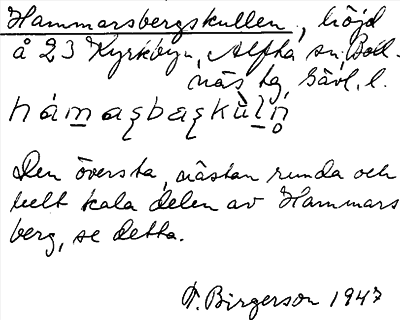 Hammarsbergskullen, höjd
å 23 Kyrkbyn, Alfta sn, Boll-
näs tg, Gävl. l.
Den översta, nästan runda och
helt kala delen av Hammars
berg, se detta.
F. Birgerson 1947